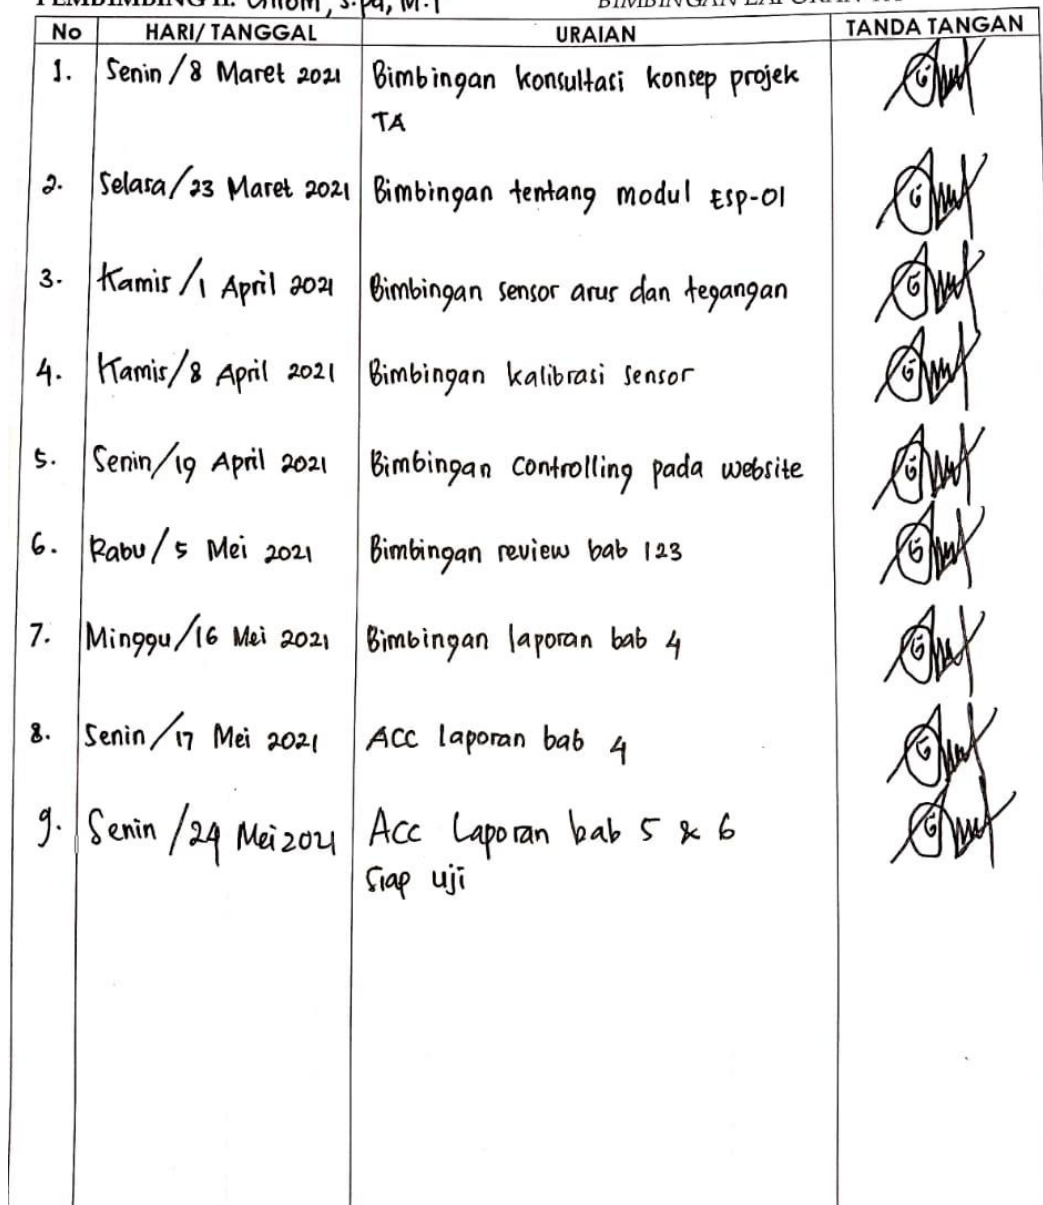 PEMBIMBING II: S.Pd, M.T
BIMBINGAN LAPORAN
No HARI/TANGGAL URAIAN TANDA TANGAN
1. Senin / 8 Maret 2021 Bimbingan konsultasi konsep projek
TA
2. Selasa/23 Maret 2021 Bimbingan tentang modul ESP-01
3. Kamis / 1 April 2021 Bimbingan sensor arus dan tegangan
4. Kamis/8 April 2021 Bimbingan kalibrasi sensor
5. Senin/19 April 2021 Bimbingan controlling pada website
6. Rabu/ 5 Mei 2021 Bimbingan review bab 123
7. Minggu/16 Mei 2021 Bimbingan laporan bab 4
8. Senin/17 Mei 2021 ACC laporan bab 4
9. Senin /24 Mei 2021 Acc Laporan bab 5 & 6
Siap uji